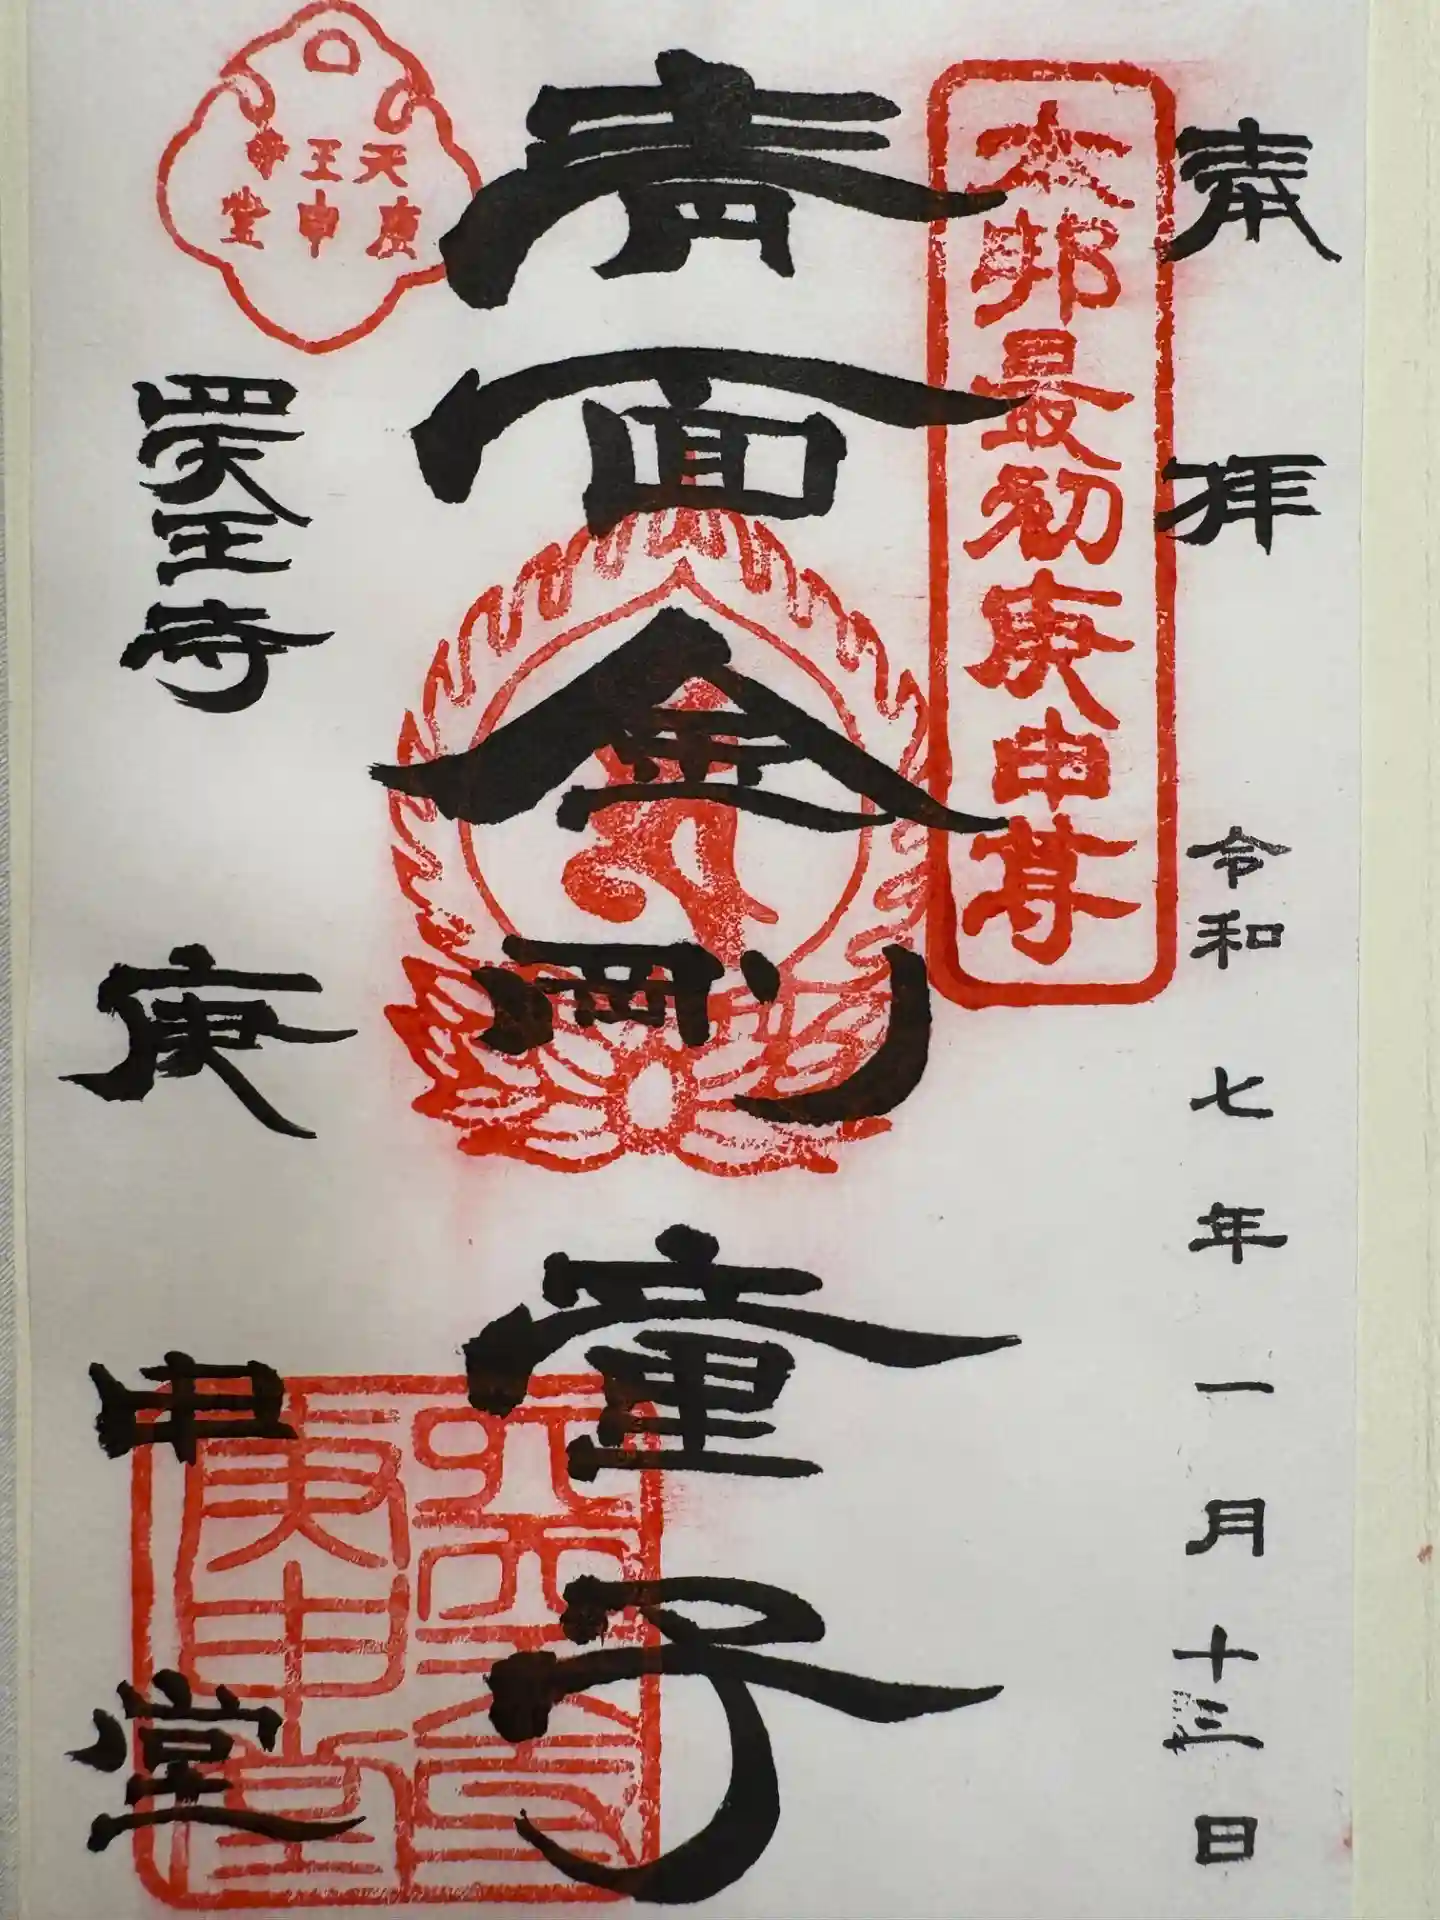 奉拝
令和七年一月十三日
本邦最初庚申尊
青面金剛童子
四天王寺
庚申堂
天王寺
庚申堂